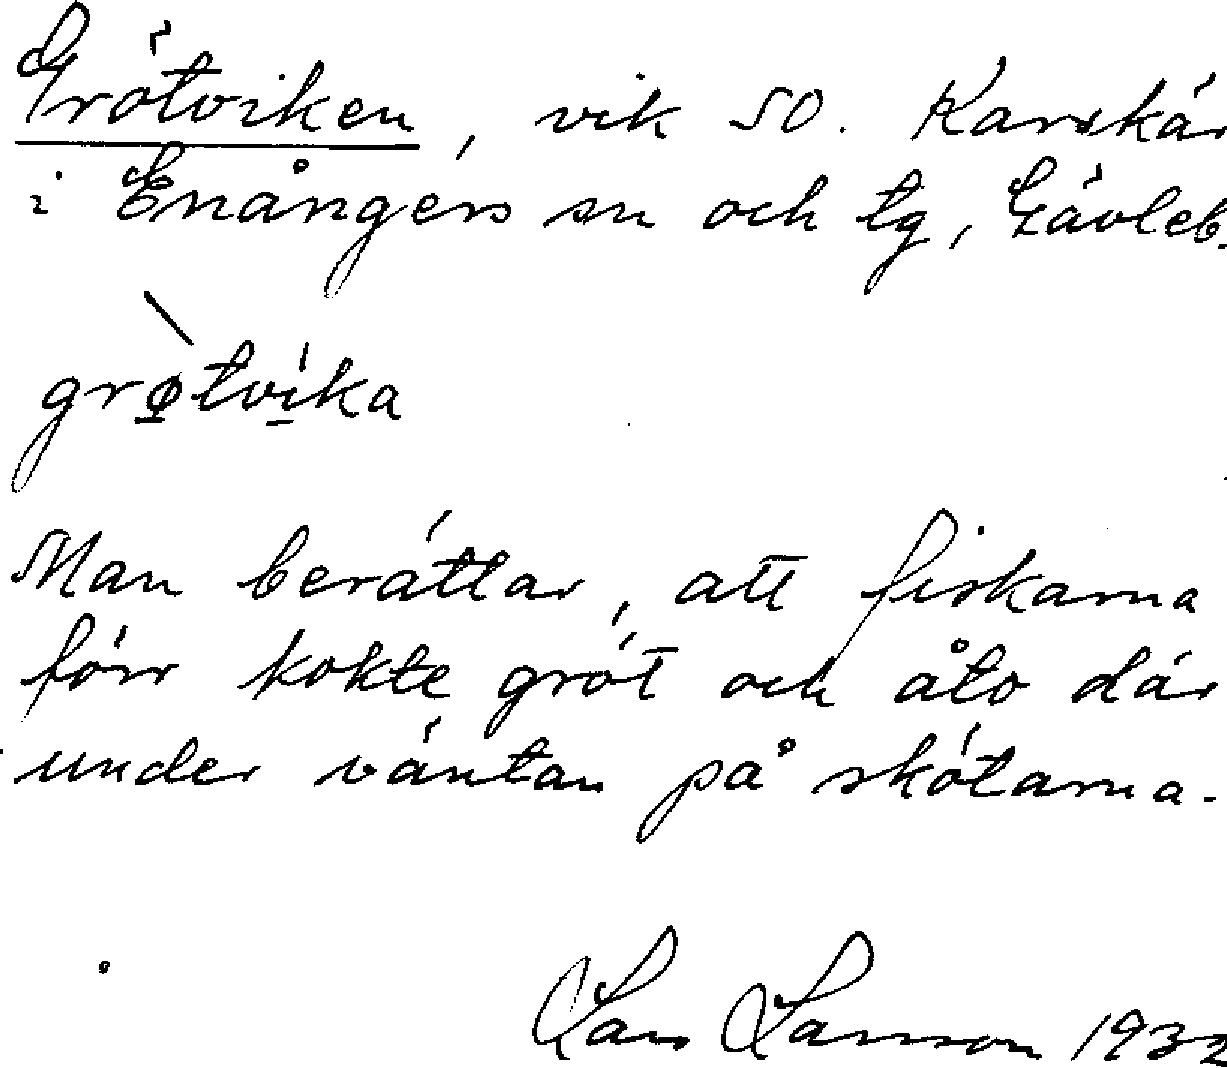 Grötviken, vik SO. Karskär
i Enångers sn och tg, Gävleb.
grøtvika
Man berättar, att fiskarna
förr kokte gröt och åto där
under väntan på skötarna.
Lars Larsson 1932